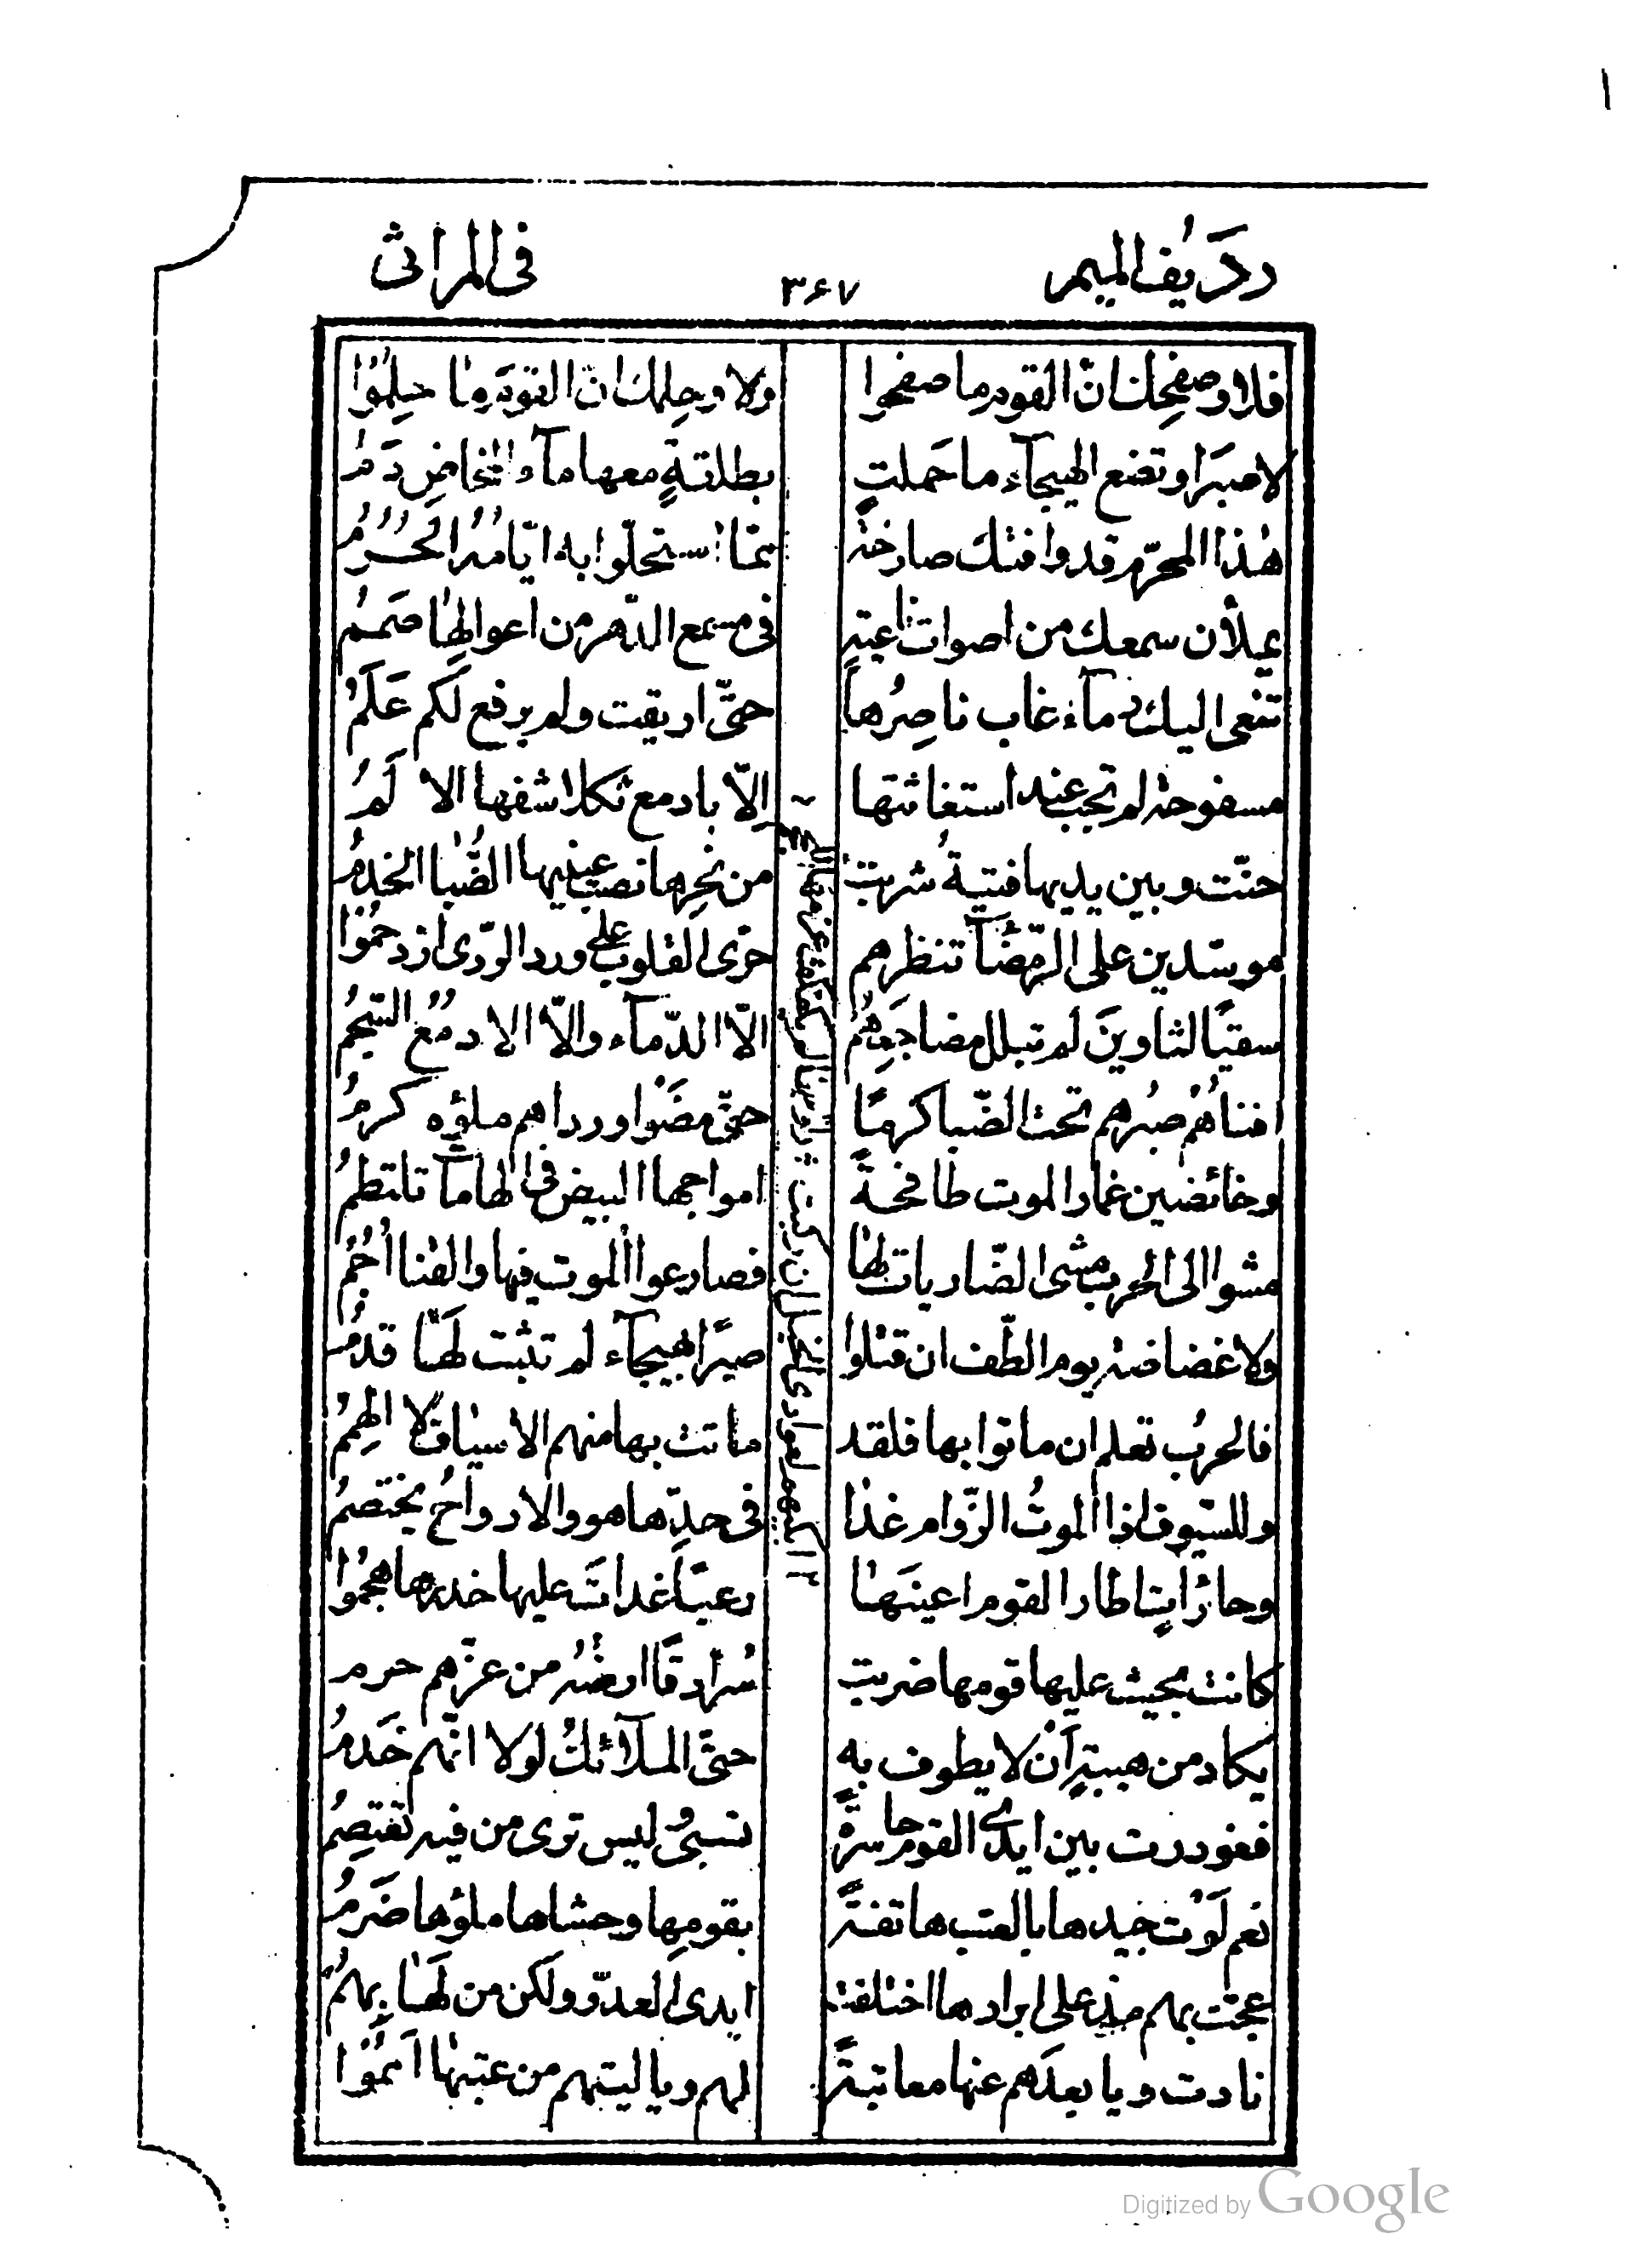 ردیف المیم ۳۶۷ فی المراثی
فلا وصفحك ان القوم ما صفحوا ولا وحلمك ان القوم ما حلموا
لا صبر او تضع الهیجآء ما حملت بطلقة معها مآء المخاض دم
هذا المحرم قد وافتك صارخة مما استحلوا به ایامه الحرم
یملأن سمعك من اصوات ناعیة فی مسمع الدهر من اعوالها صمم
تنعی الیك دمآء غاب ناصرها حتی اریقت ولم یرفع لکم علم
مسفوحة لم تجب عند استغاثتها الا بادمع ثکلا شفها الالم
حنت وبین یدیها فتیة شربت من نحرها نصب عینیها الضبا الخذم
موسدین علی الرمضآ تنظرهم حری القلوب علی ورد الردی ازدحموا
سقیا لثاوین لم تبلل مضاجعهم الا الدمآء والا الادمع السجم
افناهم صبرهم تحت الضبا کرما حتی مضوا ورداهم ملؤه کرم
وخائضین غمار الموت طافحة امواجها البیض فی الهامآت تلتطم
مشوا الی الحرب مشی الضاریات لها فصارعوا الموت فیها والقنا اجم
ولا غضاضة یوم الطف ان قتلوا صبرا بهیجآء لم تثبت لها قدم
فالحرب تعلم ان ماتوا بها فلقد ماتت بها منهم الاسیاف لا الهمم
وللسیوف اذا الموت الزؤام غدا فی حدها هو والارواح یختصم
وحائرات اطار القوم اعینها رعبا غداة علیها خدرها هجموا
کانت بحیث علیها قومها ضربت سرادقا ارضه من عزهم حرم
یکاد من هیبة ان لا یطوف به حتی الملآئك لولا انهم خدم
فغودرت بین ایدی القوم حاسرة تسبی ولیس تری من فیه تعتصم
نعم لوت جیدها بالعتب هاتفة بقومها وحشاها ملؤها ضرم
عجت بهم مذ علی ابرادها اختلفت ایدی العدو ولکن من لها بهم
نادت ویا بعدهم عنها معاتبة لهم ویا لیتهم من عتبها امم
Digitized by Google